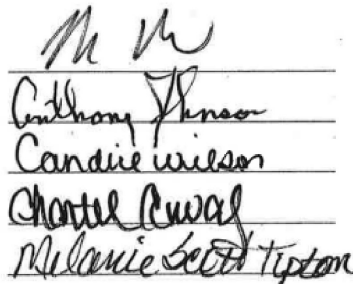 Anthony Johnson
Candice Wilson
Chantel
Melanie Scott Tipton